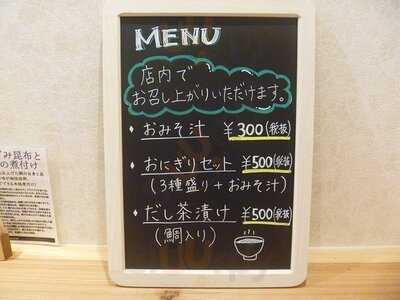 MENU
店内で
お召し上がりいただけます。
・おみそ汁 ¥300(税抜)
・おにぎりセット ¥500(税抜)
(3種盛り+おみそ汁)
・だし茶漬け ¥500(税抜)
(鯛入り)
み昆布と
の煮付け